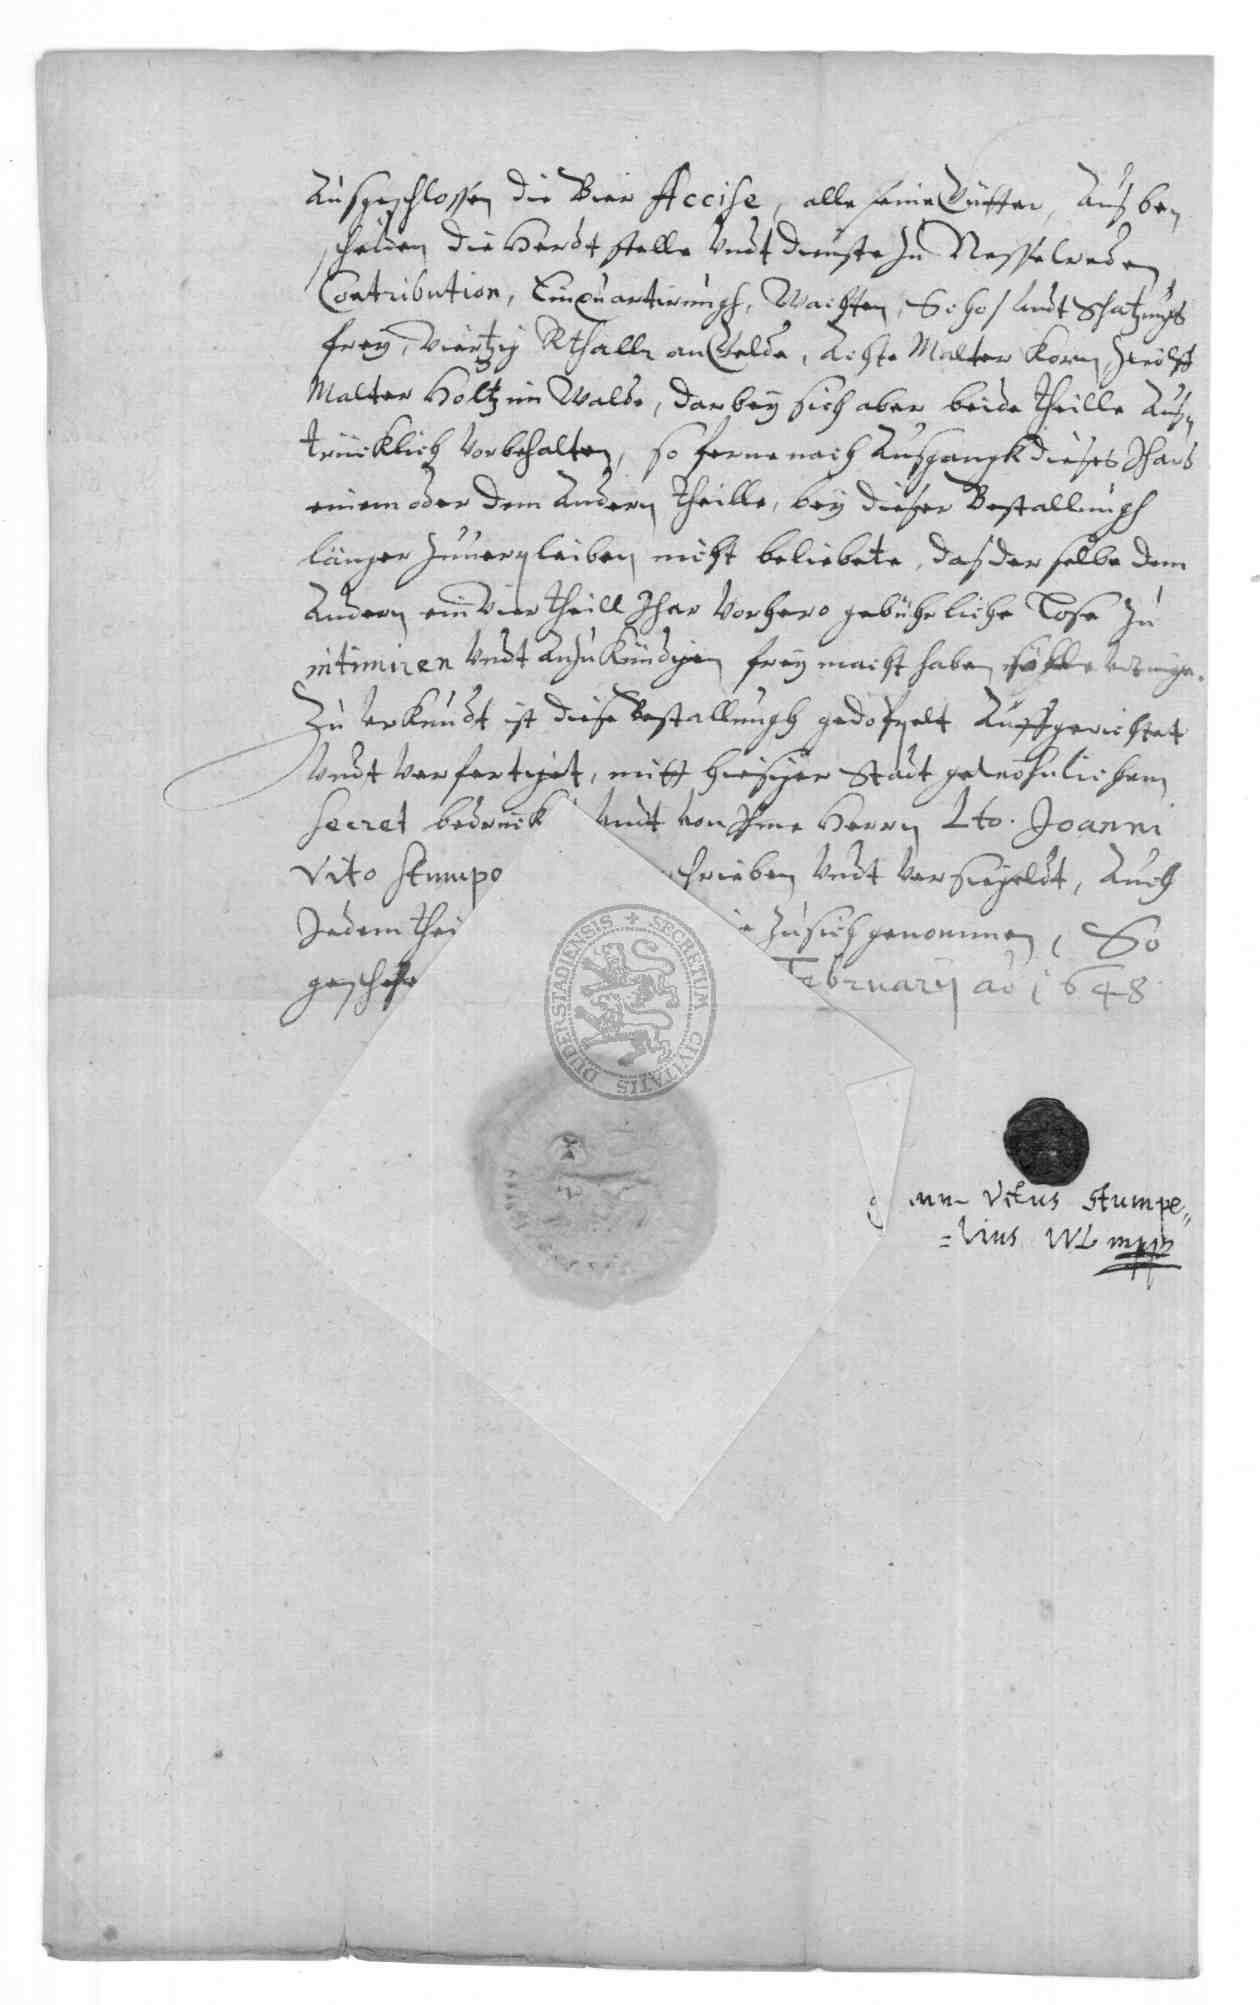 Außgeschlossen die Bier Accise, alle seine Gütter, Auß be„
scheiden die Herdt stelle Vndt dienste zu Nesselreden,
Contribution, Einquartirungh, Wachten, Schos Vndt Schatzungs
frey, Viertzig Rthallr an Gelde, Achte Malter Korn, Zwölff
Malter Holtz im Walde, darbey sich aber beide theille Auß„
trücklich Vorbehalten, so ferne nach Ausgangk dieses Jhars
einem oder dem Andern theille, bey dieser Bestallungh
länger zuuerpleiben nicht beliebete, das der selbe dem
Andern ein Vier theill Jhar Vorhero gebührliche Lose zu
intimiren Vndt Anzukündigen frey macht haben
Zu Urkundt ist diese Bestallungh gedoppelt Auffgerichtet
Vndt Verfertiget, mitt hiesiger Stadt gewöhnlichem
Secret bedruck Vndt von Jhme Herrn Lto. Joanni
Vito Stumpe schrieben Vndt Versiegeldt, Auch
Jedem thei zu sich genommen, So
geschehe Februarij ao 1648
SECRETUM CIVITATIS DUDERSTADIENSIS
Vitus Stumpe„
=lius mppr